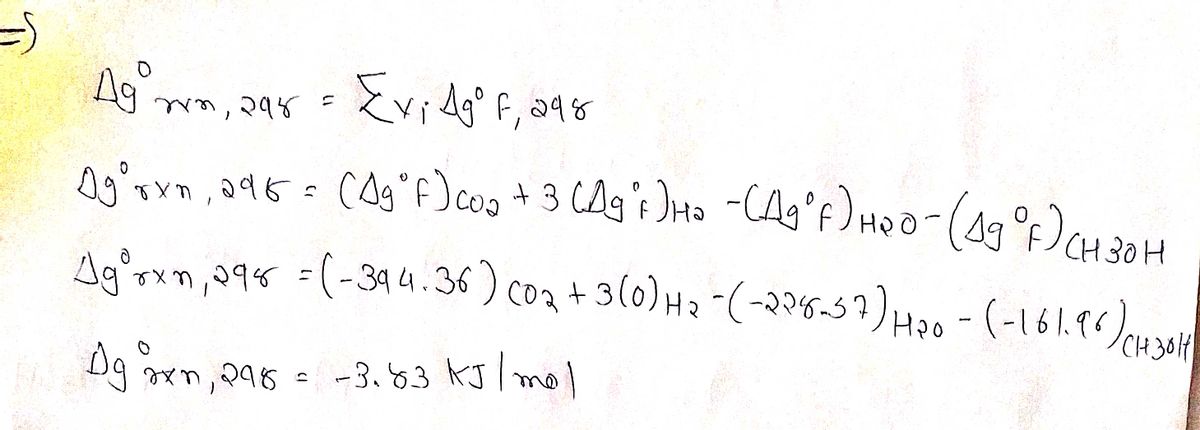 =>
Δg° rxn, 298 = Σνi Δg° f, 298
Δg° rxn, 298 = (Δg°f)CO2 + 3 (Δg°f)H2 - (Δg°f)H2O - (Δg°f)CH3OH
Δg° rxn, 298 = (-394.36)CO2 + 3(0)H2 - (-228.57)H2O - (-161.96)CH3OH
Δg° rxn, 298 = -3.83 KJ/mol